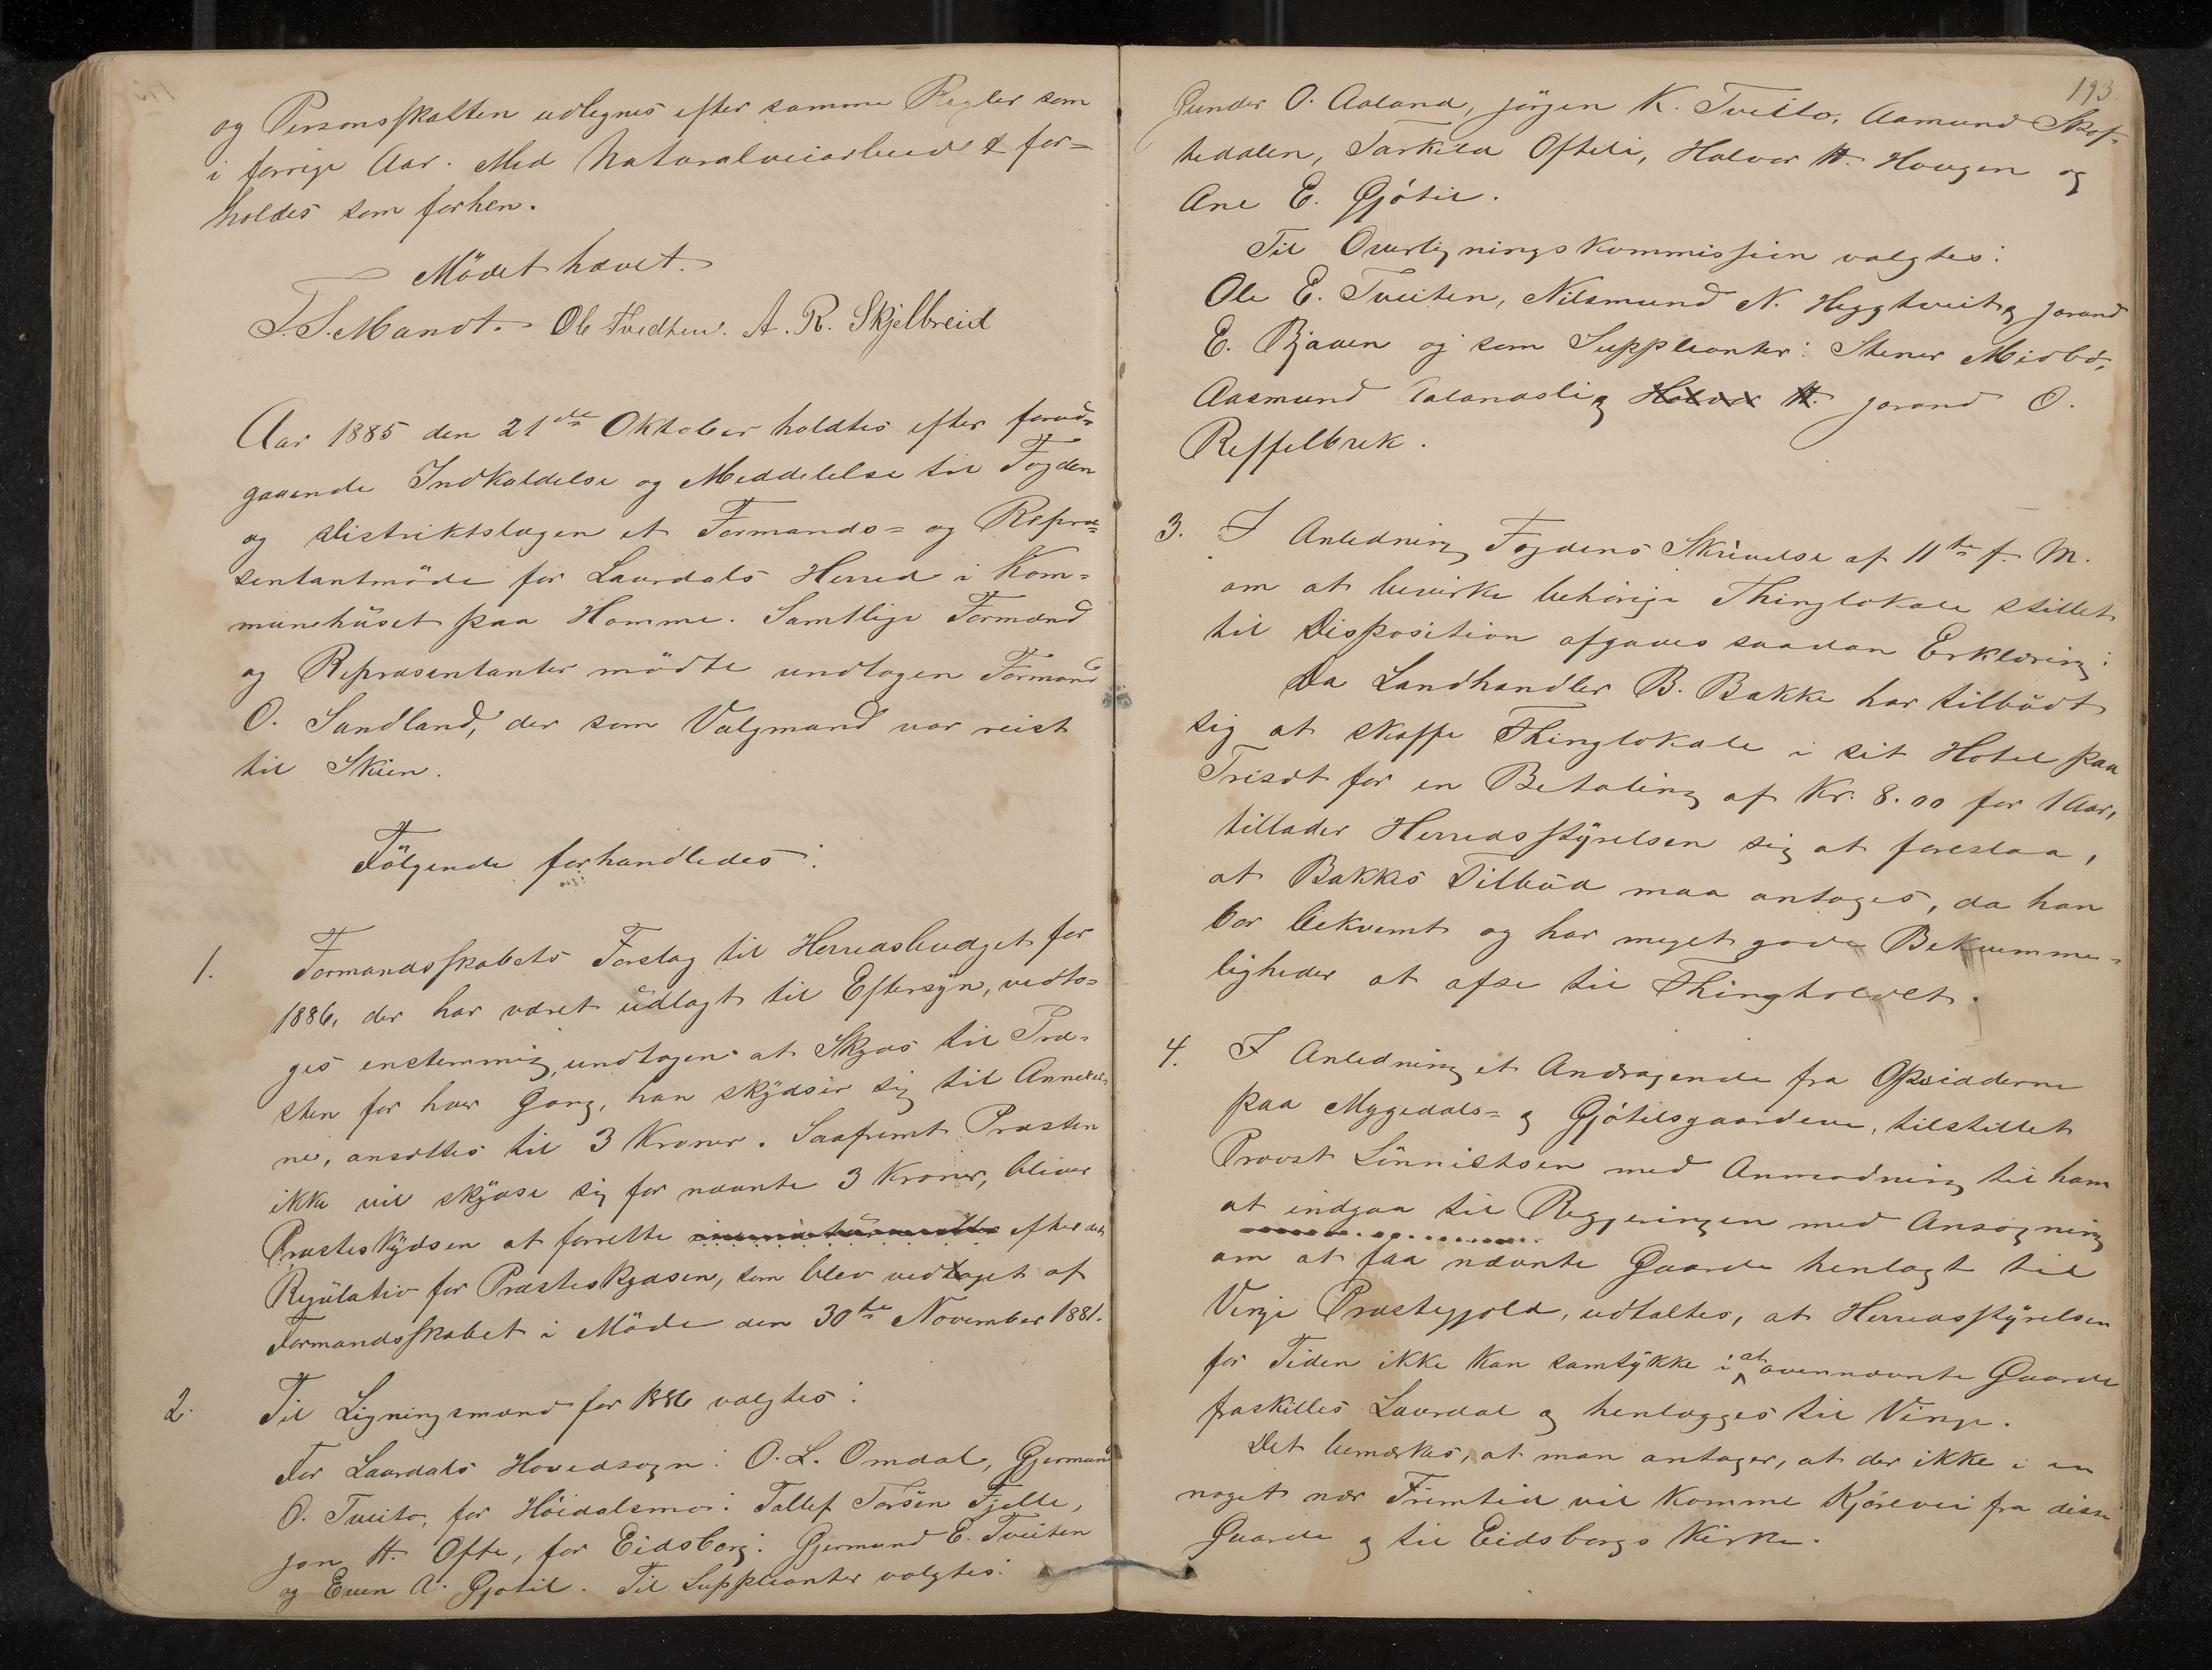 og Personsskatten udlignes efter samme Regler som
i forrige Aar. Med Naturalveiarbeidet for=
holdes som forhen.
Mödet hævet.
T. S. Mandt. Ole Tvedten. A. R. Skjelbreid
Aar 1885 den 21de Oktober holdtes efter forud=
gaaende Indkaldelse og Meddelelse til Fogden
og Distriktslægen et Formands= og Repræ=
sentantmöde for Laurdals Herred i Kom=
munehuset paa Homme. Samtlige Formænd
og Repræsentanter mödte undtagen Formand
O. Sandland, der som Valgmand var reist
til Skien.
Fölgende forhandledes:
1. Formandsskabets Forslag til Herredsbudget for
1886, der har været udlagt til Eftersyn, vedto=
ges enstemmig, undtagen at Skyds til Præ=
sten for hver Gang, han skydser sig til Annexer=
ne, ansættes til 3 Kroner. Saafremt Præsten
ikke vil skydse sig for nævnte 3 Kroner, bliver
Præsteskydsen at forrette efter det
Regulativ for Præsteskydsen, som blev vedtaget af
Formandsskabet i Möde den 30te November 1881.
2. Til Ligningsmænd for 1886 valgtes:
For Laurdals Hovedsogn: O. L. Omdal, Gjermund
O. Tveito, for Höidalsmo: Tallef Torsen Fjelle,
Jon H. Ofte, for Eidsborg: Gjermund E. Tveiten
og Even A. Gjötil. Til Suppleanter valgtes:
193.
Gunder O. Aaland, Jörgen K. Tveito, Aamund Skof=
tedalen, Tarkeld Ofteli, Halvor H. Haugen og
Ane E. Gjötil.
Til Overligningskommission valgtes:
Ole E. Tveiten, Nilsmund N. Heggtveit og Jorand
E. Bjaaen og som Suppleanter: Stener Midbö,
Aasmund Aalandsli og Halvor H. Jorand O.
Reffelbrek.
3. I Anledning Fogdens Skrivelse af 11te f. M.
om at bevirke behörige Thinglokale stillet
til Disposition afgaves saadan Erklæring:
Da Landhandler B. Bakke har tilbudt
sig at skaffe Thinglokale i sit Hotel paa
Trisæt for en Betaling af Kr. 8.00 for 1 Aar,
tillader Herredsstyrelsen sig at foreslaa,
at Bakkes Tilbud maa antages, da han
bor bekvemt og har meget gode Bekvemme=
ligheder at afse til Thingholdet.
4. I Anledning et Andragende fra Opsidderne
paa Myggedals= og Gjötilsgaardene, tilstillet
Provst Lönnichsen med Anmodning til ham
at indgaa til Regjeringen med Ansögning
om at faa nævnte Gaarde henlagt til
Vinje Præstegjeld, udtaltes, at Herredsstyrelsen
for Tiden ikke kan samtykke i at ovennævnte Gaarde
fraskilles Laurdal og henlægges til Vinje.
Det bemærkes, at man antager, at der ikke i en
noget nær Fremtid vil komme Kjörevei fra disse
Gaarde og til Eidsborgs Kirke.